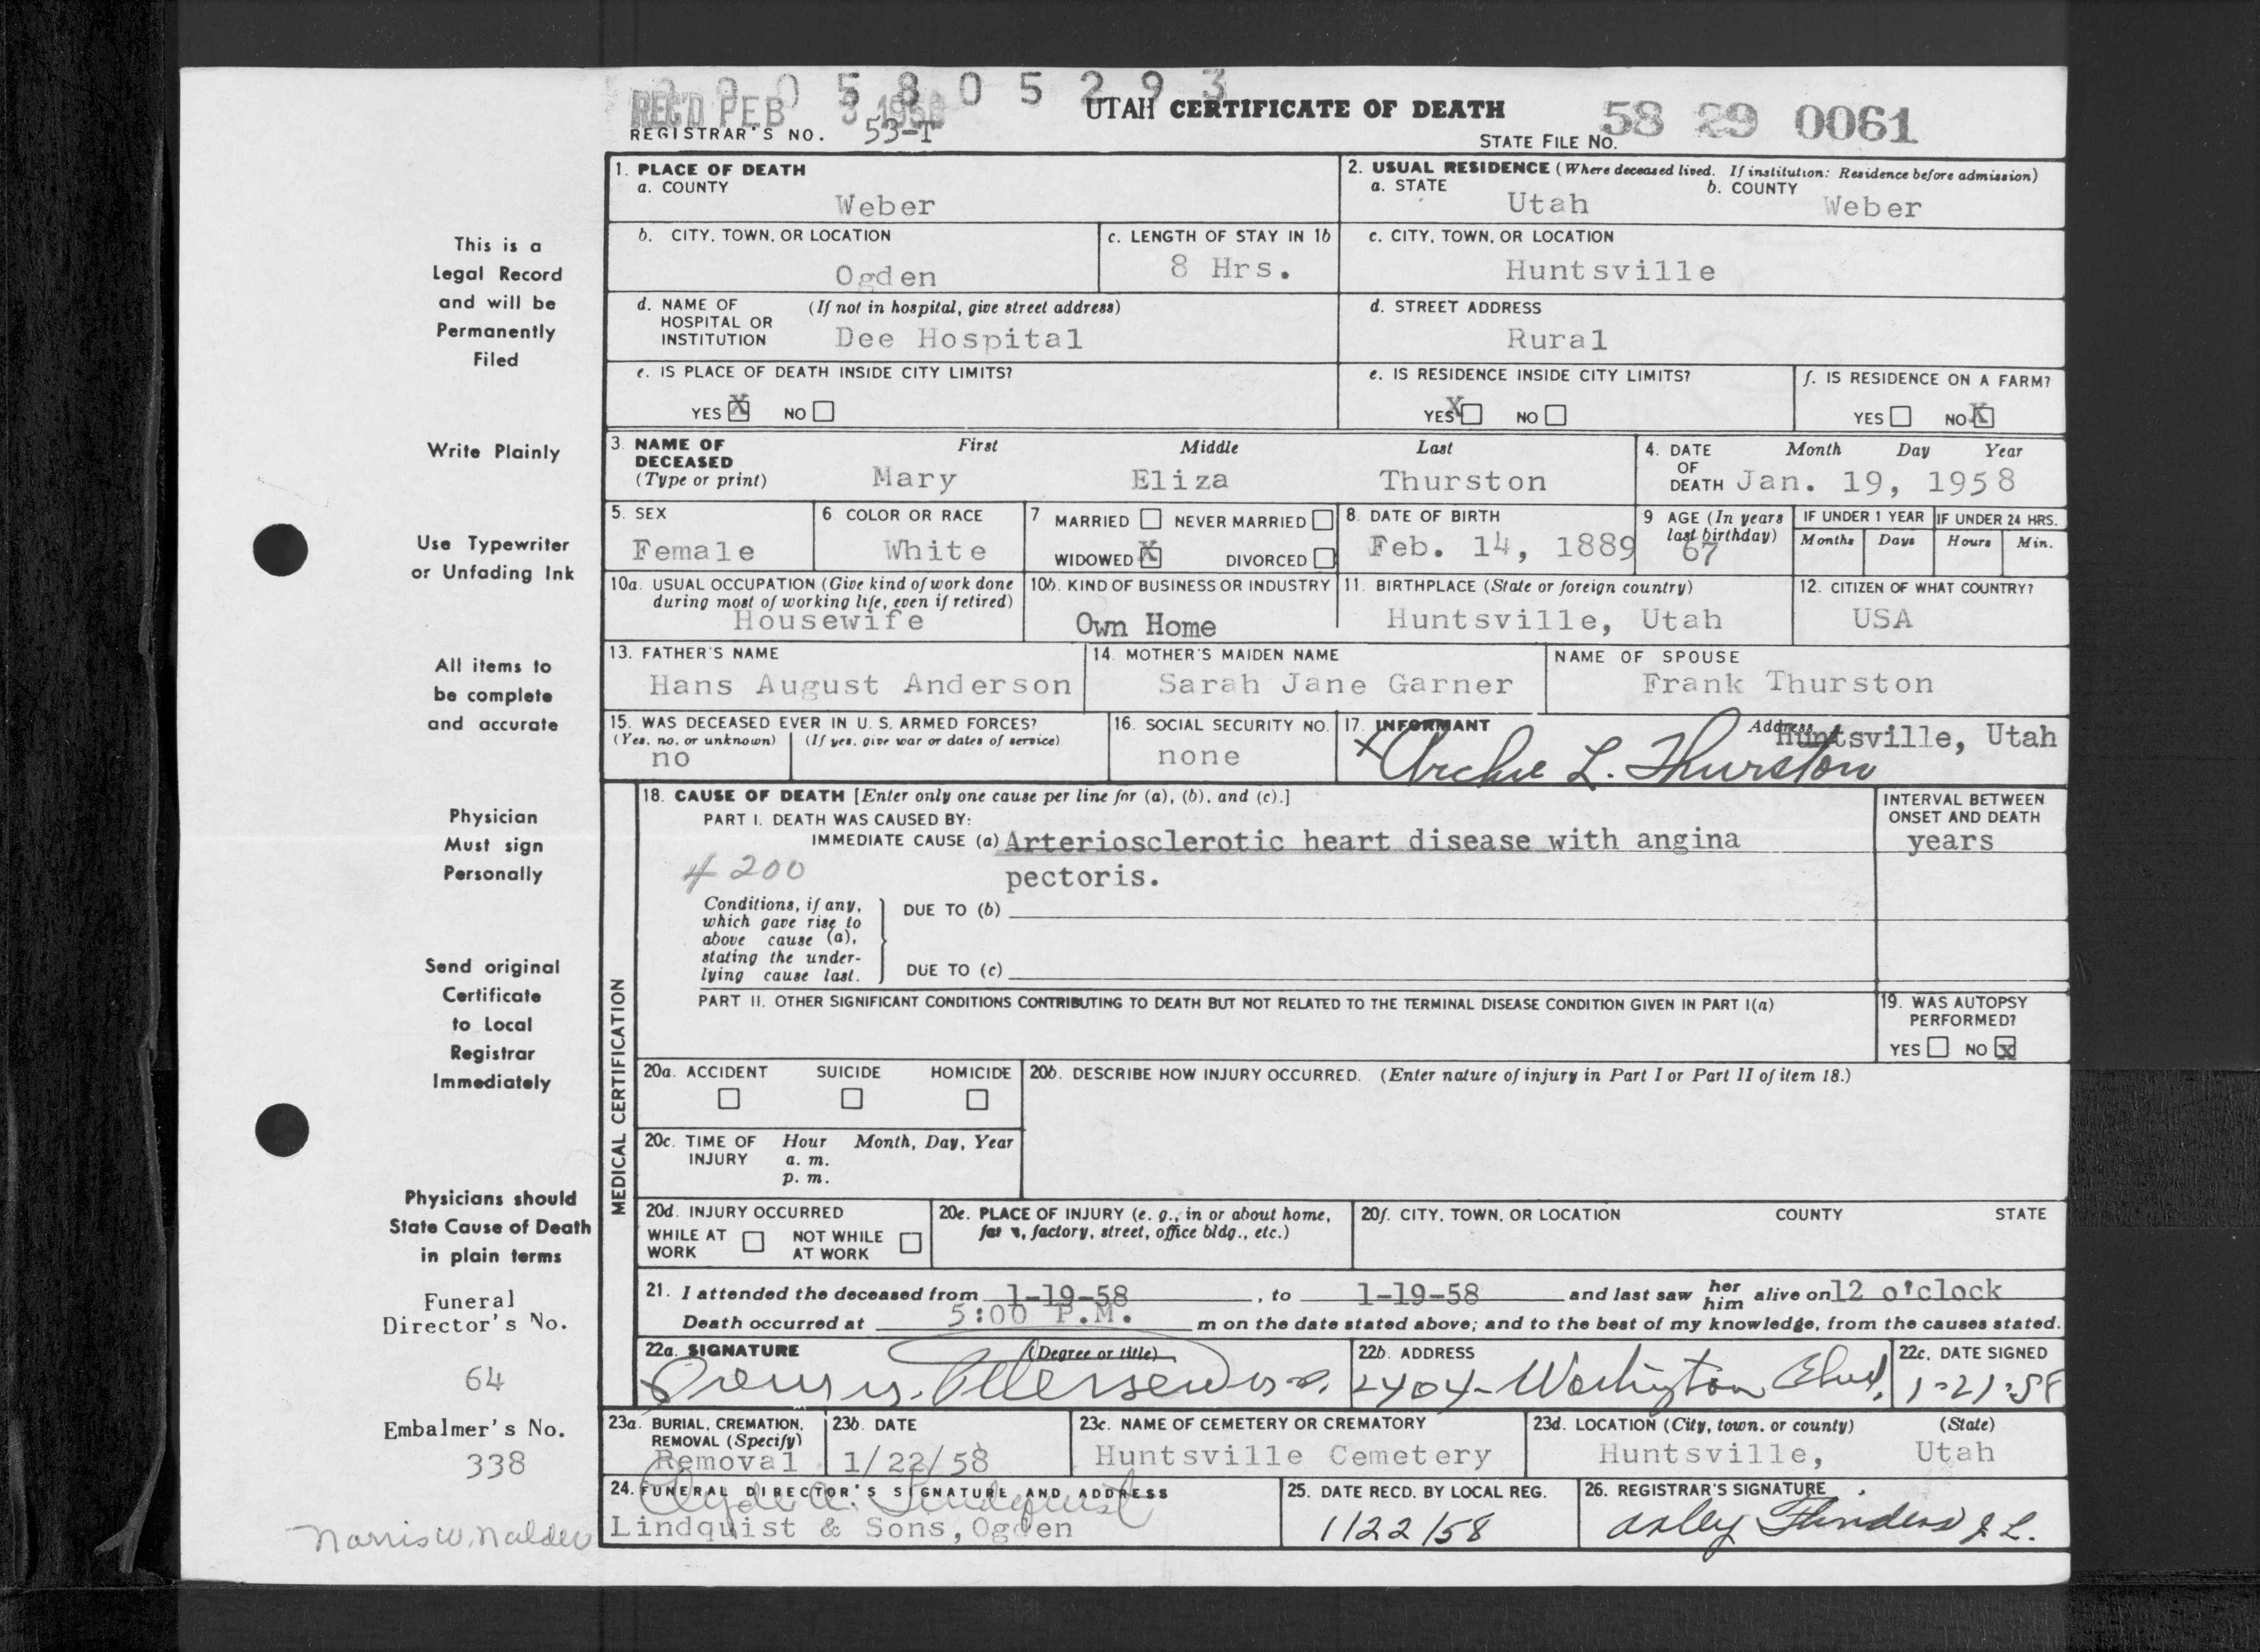 0 0 0 5 8 0 5 2 9 3
REC'D FEB 3 1958
UTAH CERTIFICATE OF DEATH
REGISTRAR'S NO. 53-T
STATE FILE NO. 58 29 0061
1. PLACE OF DEATH
a. COUNTY
Weber
2. USUAL RESIDENCE (Where deceased lived. If institution: Residence before admission)
a. STATE b. COUNTY
Utah Weber
b. CITY, TOWN, OR LOCATION
Ogden
c. LENGTH OF STAY IN 1b
8 Hrs.
c. CITY, TOWN, OR LOCATION
Huntsville
d. NAME OF (If not in hospital, give street address)
HOSPITAL OR
INSTITUTION Dee Hospital
d. STREET ADDRESS
Rural
e. IS PLACE OF DEATH INSIDE CITY LIMITS?
YES X NO
e. IS RESIDENCE INSIDE CITY LIMITS?
YES X NO
f. IS RESIDENCE ON A FARM?
YES NO X
3. NAME OF First Middle Last
DECEASED
(Type or print) Mary Eliza Thurston
4. DATE Month Day Year
OF
DEATH Jan. 19, 1958
5. SEX
Female
6. COLOR OR RACE
White
7 MARRIED NEVER MARRIED
WIDOWED X DIVORCED
8. DATE OF BIRTH
Feb. 14, 1889
9 AGE (In years
last birthday)
67
IF UNDER 1 YEAR IF UNDER 24 HRS.
Months Days Hours Min.
10a. USUAL OCCUPATION (Give kind of work done
during most of working life, even if retired)
Housewife
10b. KIND OF BUSINESS OR INDUSTRY
Own Home
11. BIRTHPLACE (State or foreign country)
Huntsville, Utah
12. CITIZEN OF WHAT COUNTRY?
USA
13. FATHER'S NAME
Hans August Anderson
14. MOTHER'S MAIDEN NAME
Sarah Jane Garner
NAME OF SPOUSE
Frank Thurston
15. WAS DECEASED EVER IN U. S. ARMED FORCES?
(Yes, no, or unknown) (If yes, give war or dates of service)
no
16. SOCIAL SECURITY NO.
none
17. INFORMANT Address
Huntsville, Utah
X Archie L. Thurston
MEDICAL CERTIFICATION
18. CAUSE OF DEATH [Enter only one cause per line for (a), (b), and (c).]
PART I. DEATH WAS CAUSED BY:
IMMEDIATE CAUSE (a) Arteriosclerotic heart disease with angina
4200 pectoris.
INTERVAL BETWEEN
ONSET AND DEATH
years
Conditions, if any,
which gave rise to
above cause (a),
stating the under-
lying cause last.
DUE TO (b)
DUE TO (c)
PART II. OTHER SIGNIFICANT CONDITIONS CONTRIBUTING TO DEATH BUT NOT RELATED TO THE TERMINAL DISEASE CONDITION GIVEN IN PART I(a)
19. WAS AUTOPSY
PERFORMED?
YES NO X
20a. ACCIDENT SUICIDE HOMICIDE
20b. DESCRIBE HOW INJURY OCCURRED. (Enter nature of injury in Part I or Part II of item 18.)
20c. TIME OF Hour Month, Day, Year
INJURY a. m.
p. m.
20d. INJURY OCCURRED
WHILE AT NOT WHILE
WORK AT WORK
20e. PLACE OF INJURY (e. g., in or about home,
factory, street, office bldg., etc.)
20f. CITY, TOWN, OR LOCATION COUNTY STATE
21. I attended the deceased from 1-19-58, to 1-19-58 and last saw her him alive on 12 o'clock
Death occurred at 5:00 P.M. m on the date stated above; and to the best of my knowledge, from the causes stated.
22a. SIGNATURE (Degree or title)
22b. ADDRESS
2404- Washington Blvd.
22c. DATE SIGNED
1-21-58
23a. BURIAL, CREMATION,
REMOVAL (Specify)
Removal
23b. DATE
1/22/58
23c. NAME OF CEMETERY OR CREMATORY
Huntsville Cemetery
23d. LOCATION (City, town, or county) (State)
Huntsville, Utah
24. FUNERAL DIRECTOR'S SIGNATURE AND ADDRESS
Clyde A. Lindquist
Lindquist & Sons, Ogden
25. DATE RECD. BY LOCAL REG.
1/22/58
26. REGISTRAR'S SIGNATURE
This is a
Legal Record
and will be
Permanently
Filed
Write Plainly
Use Typewriter
or Unfading Ink
All items to
be complete
and accurate
Physician
Must sign
Personally
Send original
Certificate
to Local
Registrar
Immediately
Physicians should
State Cause of Death
in plain terms
Funeral
Director's No.
64
Embalmer's No.
338
Norris W. Nalder